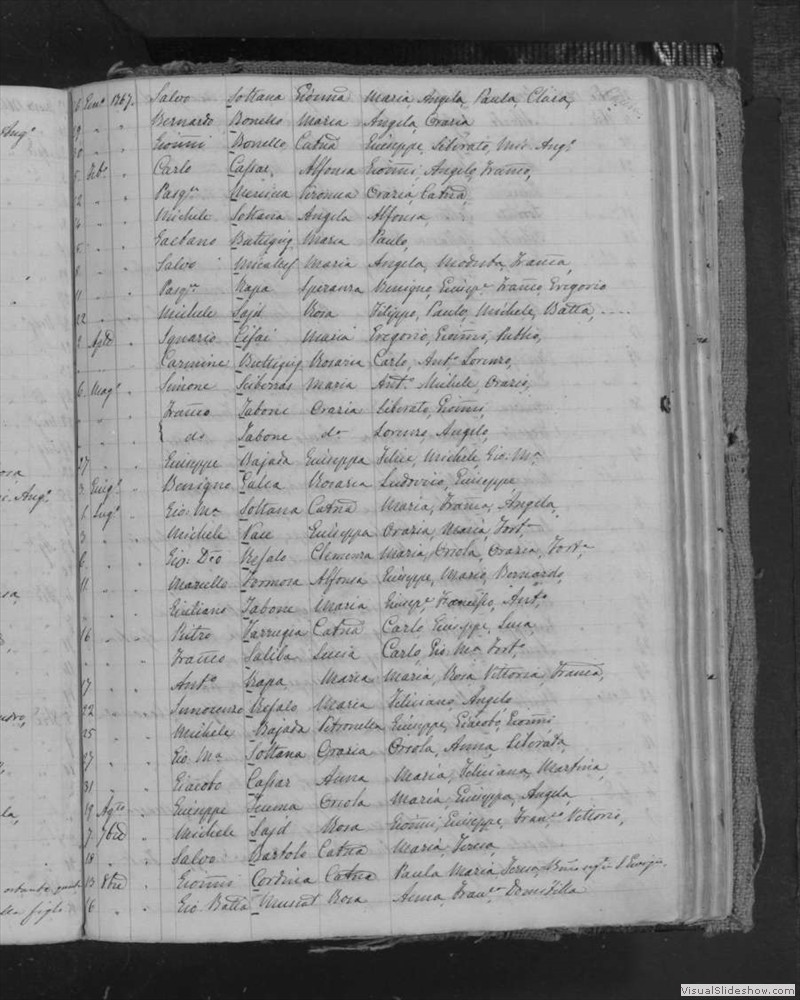 6 Genn° 1867. Salvo Sottana Gioanna Maria, Angela, Paula, Clara,
19 " " Bernardo Bonello Maria Angela, Oraria
30 " " Gioanni Bonello Catna Giuseppe Liberato, Mic. Ang°
5 Feb° " Carlo Cassar, Alfonsa Gioanni, Angelo, Franco,
12 " " Pasqle Messina Veronca Oraria, Catna,
14 " " Michele Sottana Angela Alfonsa,
5 " " Gaetano Buttigieg Maria Paulo,
8 " " Salvo Micalef Maria Angela, Modesta, Franca,
11 " " Pasqle Rapa Speranza Benigno, Giuspe Franco, Gregorio
22 " " Michele Sajd Rosa Filippo, Paulo, Michele, Batta,....
2 Aple " Ignazio Cifai Maria Gregorio, Gioanni, Publio,
" " Carmine Buttigieg Rosaria Carlo, Ant° Lorenzo,
6 Mag° " Simone Sciberras Maria Ant° Michele, Orazio,
" " Franco Tabone Oraria Liberato, Gioanni,
" " { do Tabone do Lorenzo, Angelo,
27 " " Giuseppe Bajada Giuseppa Felice, Michele Gio. Ma
3 Giug° " Benigno Galea Rosaria Ludovico, Giuseppe
1 Lug° " Gio. Ma Sottana Catna Maria, Franca, Angela,
3 " " Michele Pace Giuseppa Oraria, Maria, Forta
6 " " Gio. Dco Refalo Clemenza Maria, Orsola, Oraria, Forta
11 " " Mariello Formosa Alfonsa Giuseppe, Mario, Bernardo,
" " Giuliano Tabone Maria Giuspe Francesco, Ant°
16 " " Pietro Farrugia Catna Carlo Giuseppe, Luca
" " Franco Saliba Lucia Carlo, Gio. Ma Fort°
17 " " Ant° Rapa Maria Maria, Rosa Vittoria, Franca,
22 " " Innocenzo Refalo Maria Feliciano, Angelo
25 " " Michele Bajada Petronella Giuseppe, Giacobo, Gioanni
27 " " Gio. Ma Sottana Graria Orsola, Anna, Liberata,
31 " " Giacobo Cassar Anna Maria, Feliciana, Martina,
19 Agto " Giuseppe Teuma Orsola Maria, Giuseppa, Angela,
7 7bre " Michele Sajd Rosa Gioanni, Giuseppe, Franco Vittorio,
18 " " Salvo Bartolo Catna Maria, Teresa,
13 8bre " Gioanni Cordina Catna Paula Maria, Teresa,
16 " " Gio. Batta Muscat Rosa Anna, Franca Domitilla